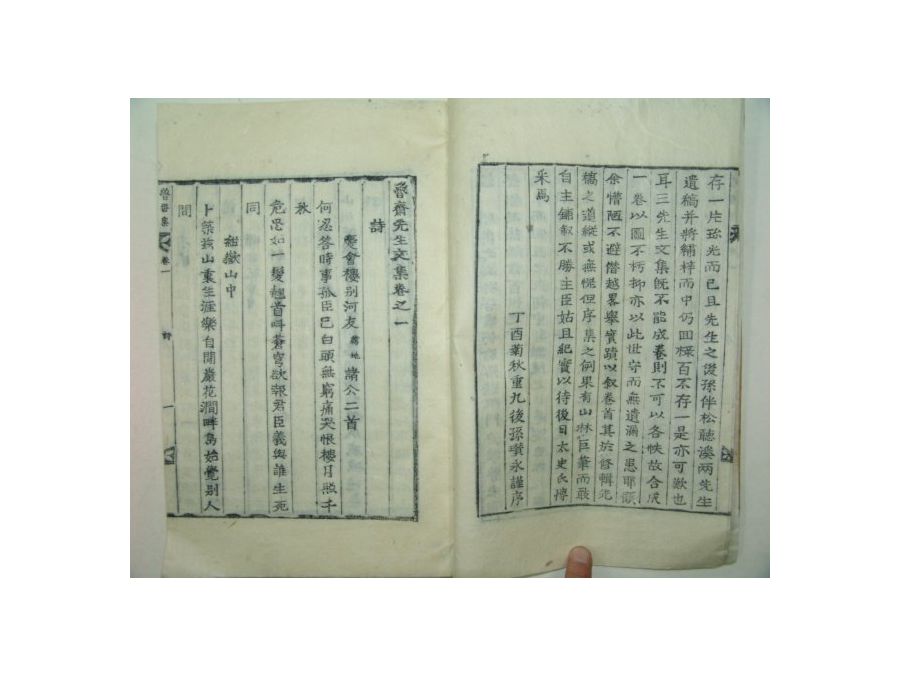 存一片珍光而已且先生之後孫伴松聽溪兩先生
遺稿并將繡梓而中仍回祿百不存一是亦可歎也
耳三先生文集旣不能成卷則不可以各帙故合成
一卷以圖不朽抑亦以此世守而無遺漏之患耶顧
余懵陋不避僭越畧擧實蹟以叙卷首其於修輯先
稿之道縱或無愧但序集之例果有山林巨筆而敢
自主鋪叙不勝主臣姑且紀實以待後日太史氏博
采焉
丁酉菊秋重九後孫瓚永謹序
魯齋先生文集卷之一
詩
會樓別河友 諸公二首
何忍答時事孤臣已白頭無窮痛哭恨樓月照千
秋
危忠如一髮翹首呌蒼穹欲報君臣義與誰生死
同
紺嶽山中
卜築玆山裏生涯樂自閒巖花澗畔鳥始覺別人
間
魯齋集 卷一 詩 一